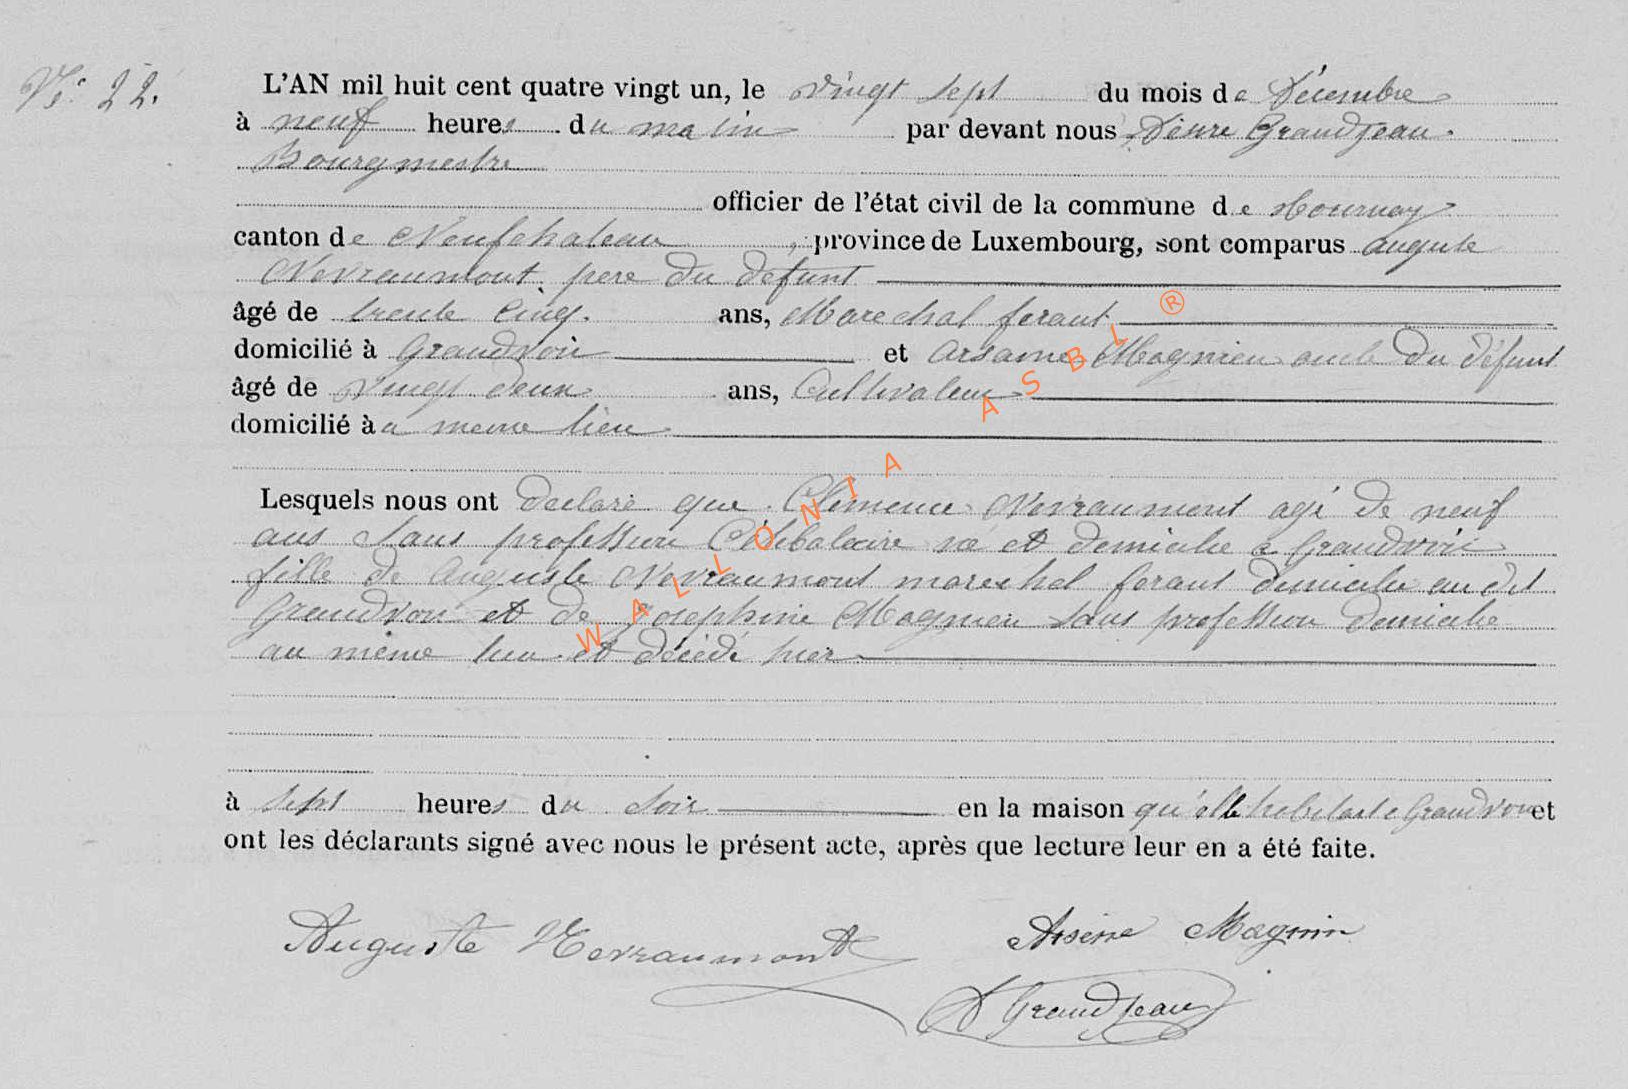 N° 22.
L'AN mil huit cent quatre vingt un, le vingt sept du mois de Décembre
à neuf heures du matin par devant nous Désire Grandjean
Bourgmestre
officier de l'état civil de la commune de Tournay
canton de Neufchateau, province de Luxembourg, sont comparus auguste
Nevraumont pere du défunt
âgé de trente cinq ans, Marechal ferant
domicilié à Grandvoir et Arsaine Magnien oncle du défunt
âgé de vingt deux ans, Cultivateur
domicilié à a meme lieu
Lesquels nous ont declaré que Clemence Nevraumont agé de neuf
ans sans profession Célibataire né et domicilie a Grandvoir
fille de Auguste Nevraumont marechal ferant domicilie au dit
Grandvoir et de Josephine Magnien sans profession domicilie
au même lieu et décédé hier
à sept heures du soir en la maison qu'elle habitait a Grandvoir et
ont les déclarants signé avec nous le présent acte, après que lecture leur en a été faite.
Auguste Nevraumont Arsène Magnin
D Grandjean
WALLONIA ASBL ®